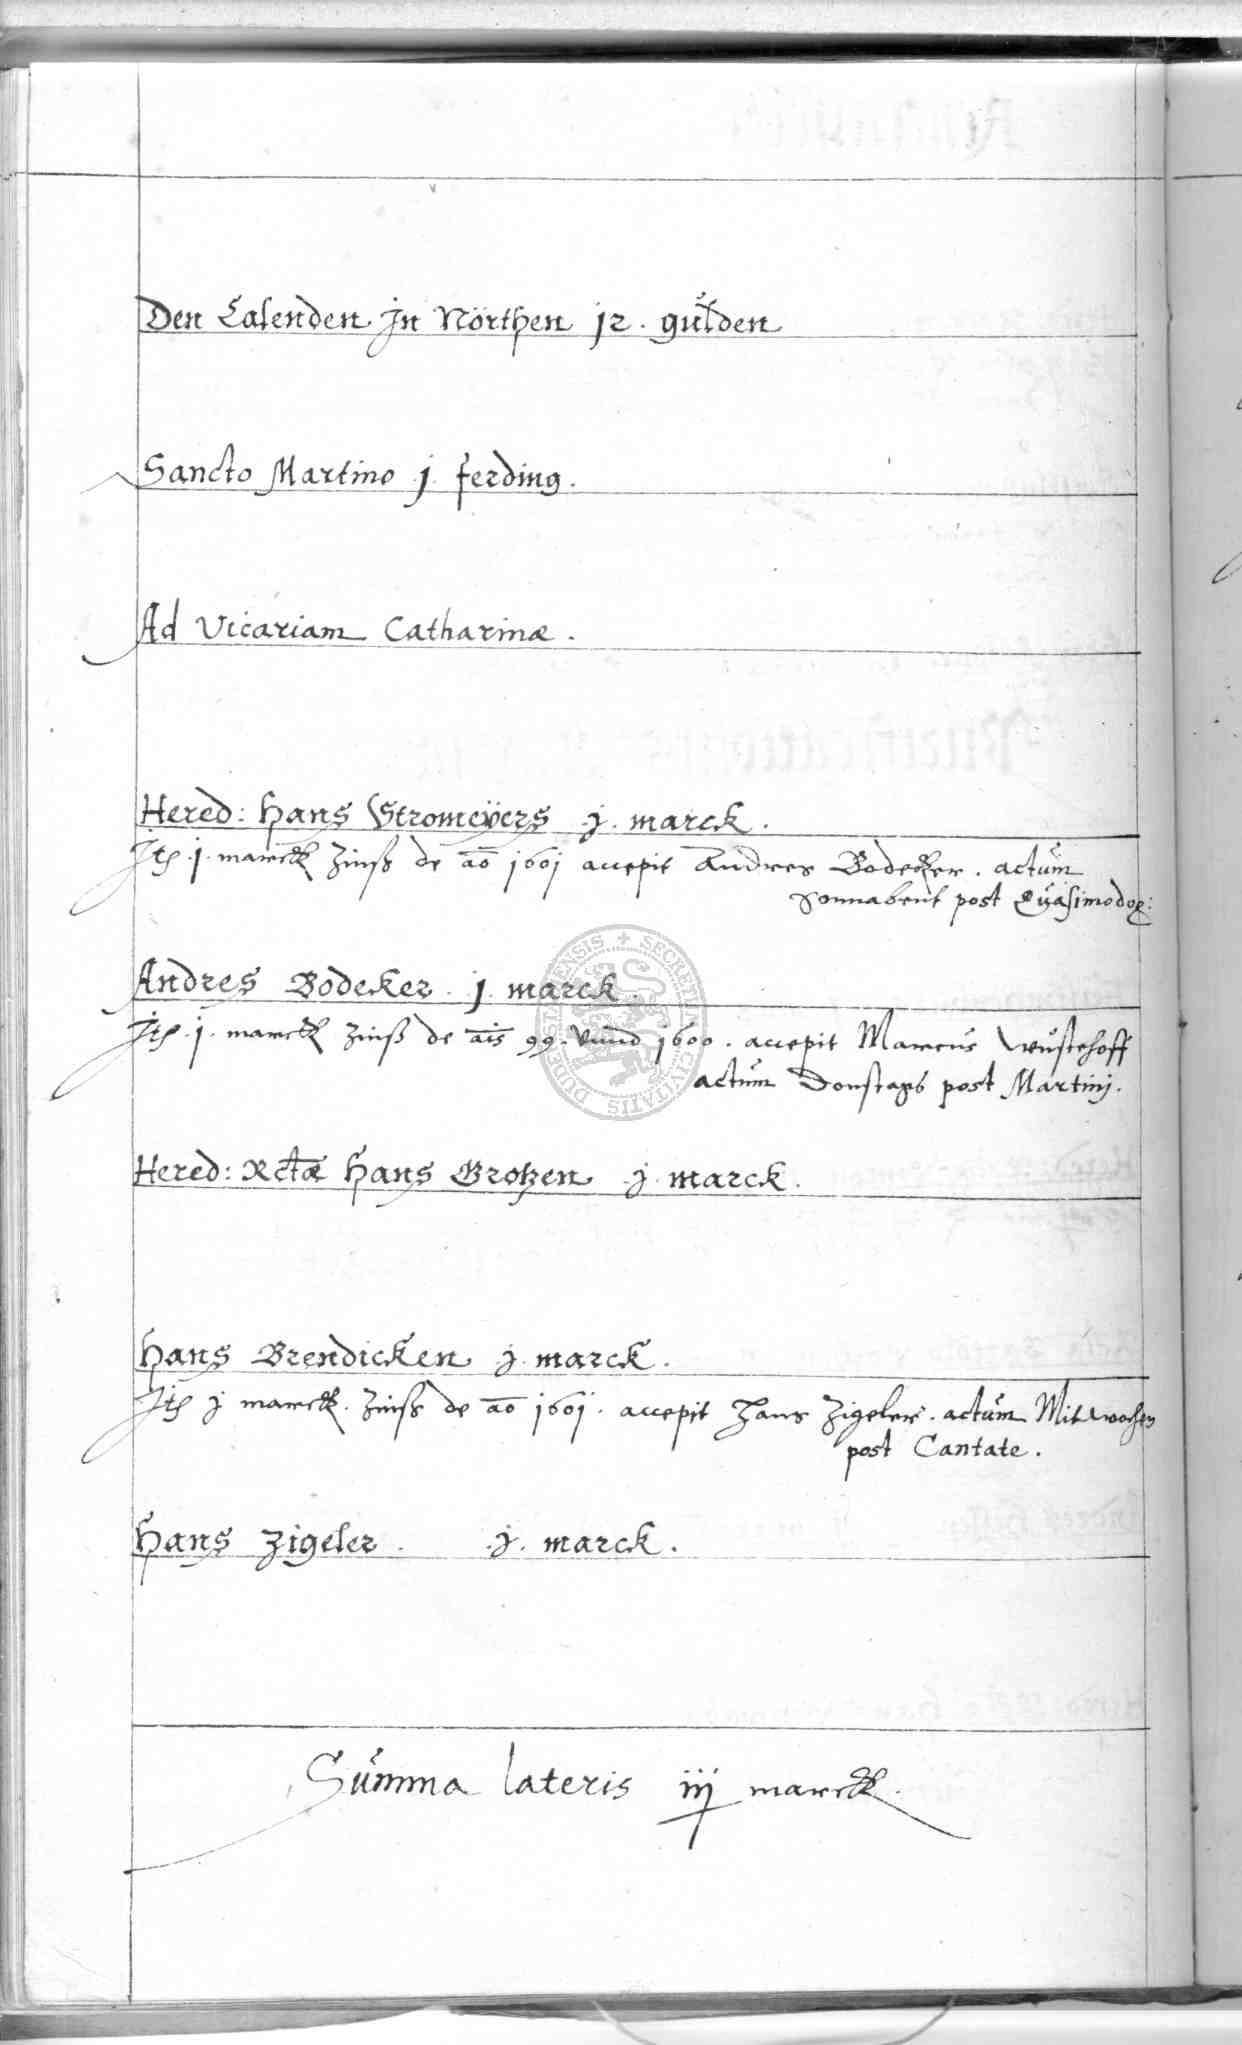 Den Calenden Jn Nörthen j2. gúlden
Sancto Martino .j. ferding.
Ad Vicariam Catharinæ.
Hered: Hans Stromeÿers .j. marck.
Jtem .j. marck Zinß de ao 1601 accepit Andres Bodeker. actúm
Sonnabent post Qúasimodog:
Andres Bodeker. j. marck.
Jtem .j. marck Zinß de ais 99. vnnd 1600. accepit Marcús Wústehoff
actúm Donstags post Martinj.
Hered: Rctæ Hans Grotzen .j. marck.
Hans Brendicken .j. marck.
Jtem j marck. Zinß de ao 1601. accepit Hans Zigeler. actúm Mitwochen
post Cantate.
Hans Zigeler. .j. marck.
Súmma lateris iij marck.
SECRETUM CIVITATIS DUDERSTATENSIS